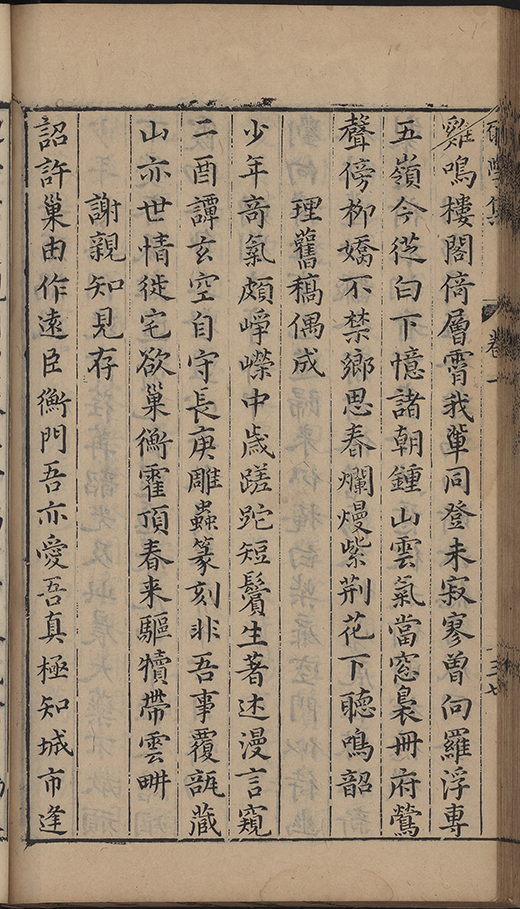 卷一
三七
雞鳴樓閣倚層霄我軰同登未寂寥曾向羅浮專
五嶺今從白下憶諸朝鍾山雲氣當窓裊冊府鶯
聲傍柳嬌不禁鄉思春爛熳紫荆花下聽鳴韶
理舊稿偶成
少年竒氣頗崢嶸中歲蹉跎短鬢生著述漫言窺
二酉譚玄空自守長庚雕蟲篆刻非吾事覆瓿藏
山亦世情徙宅欲巢衡霍頂春来驅犢帶雲畊
謝親知見存
詔許巢由作遠臣衡門吾亦愛吾真極知城市逢